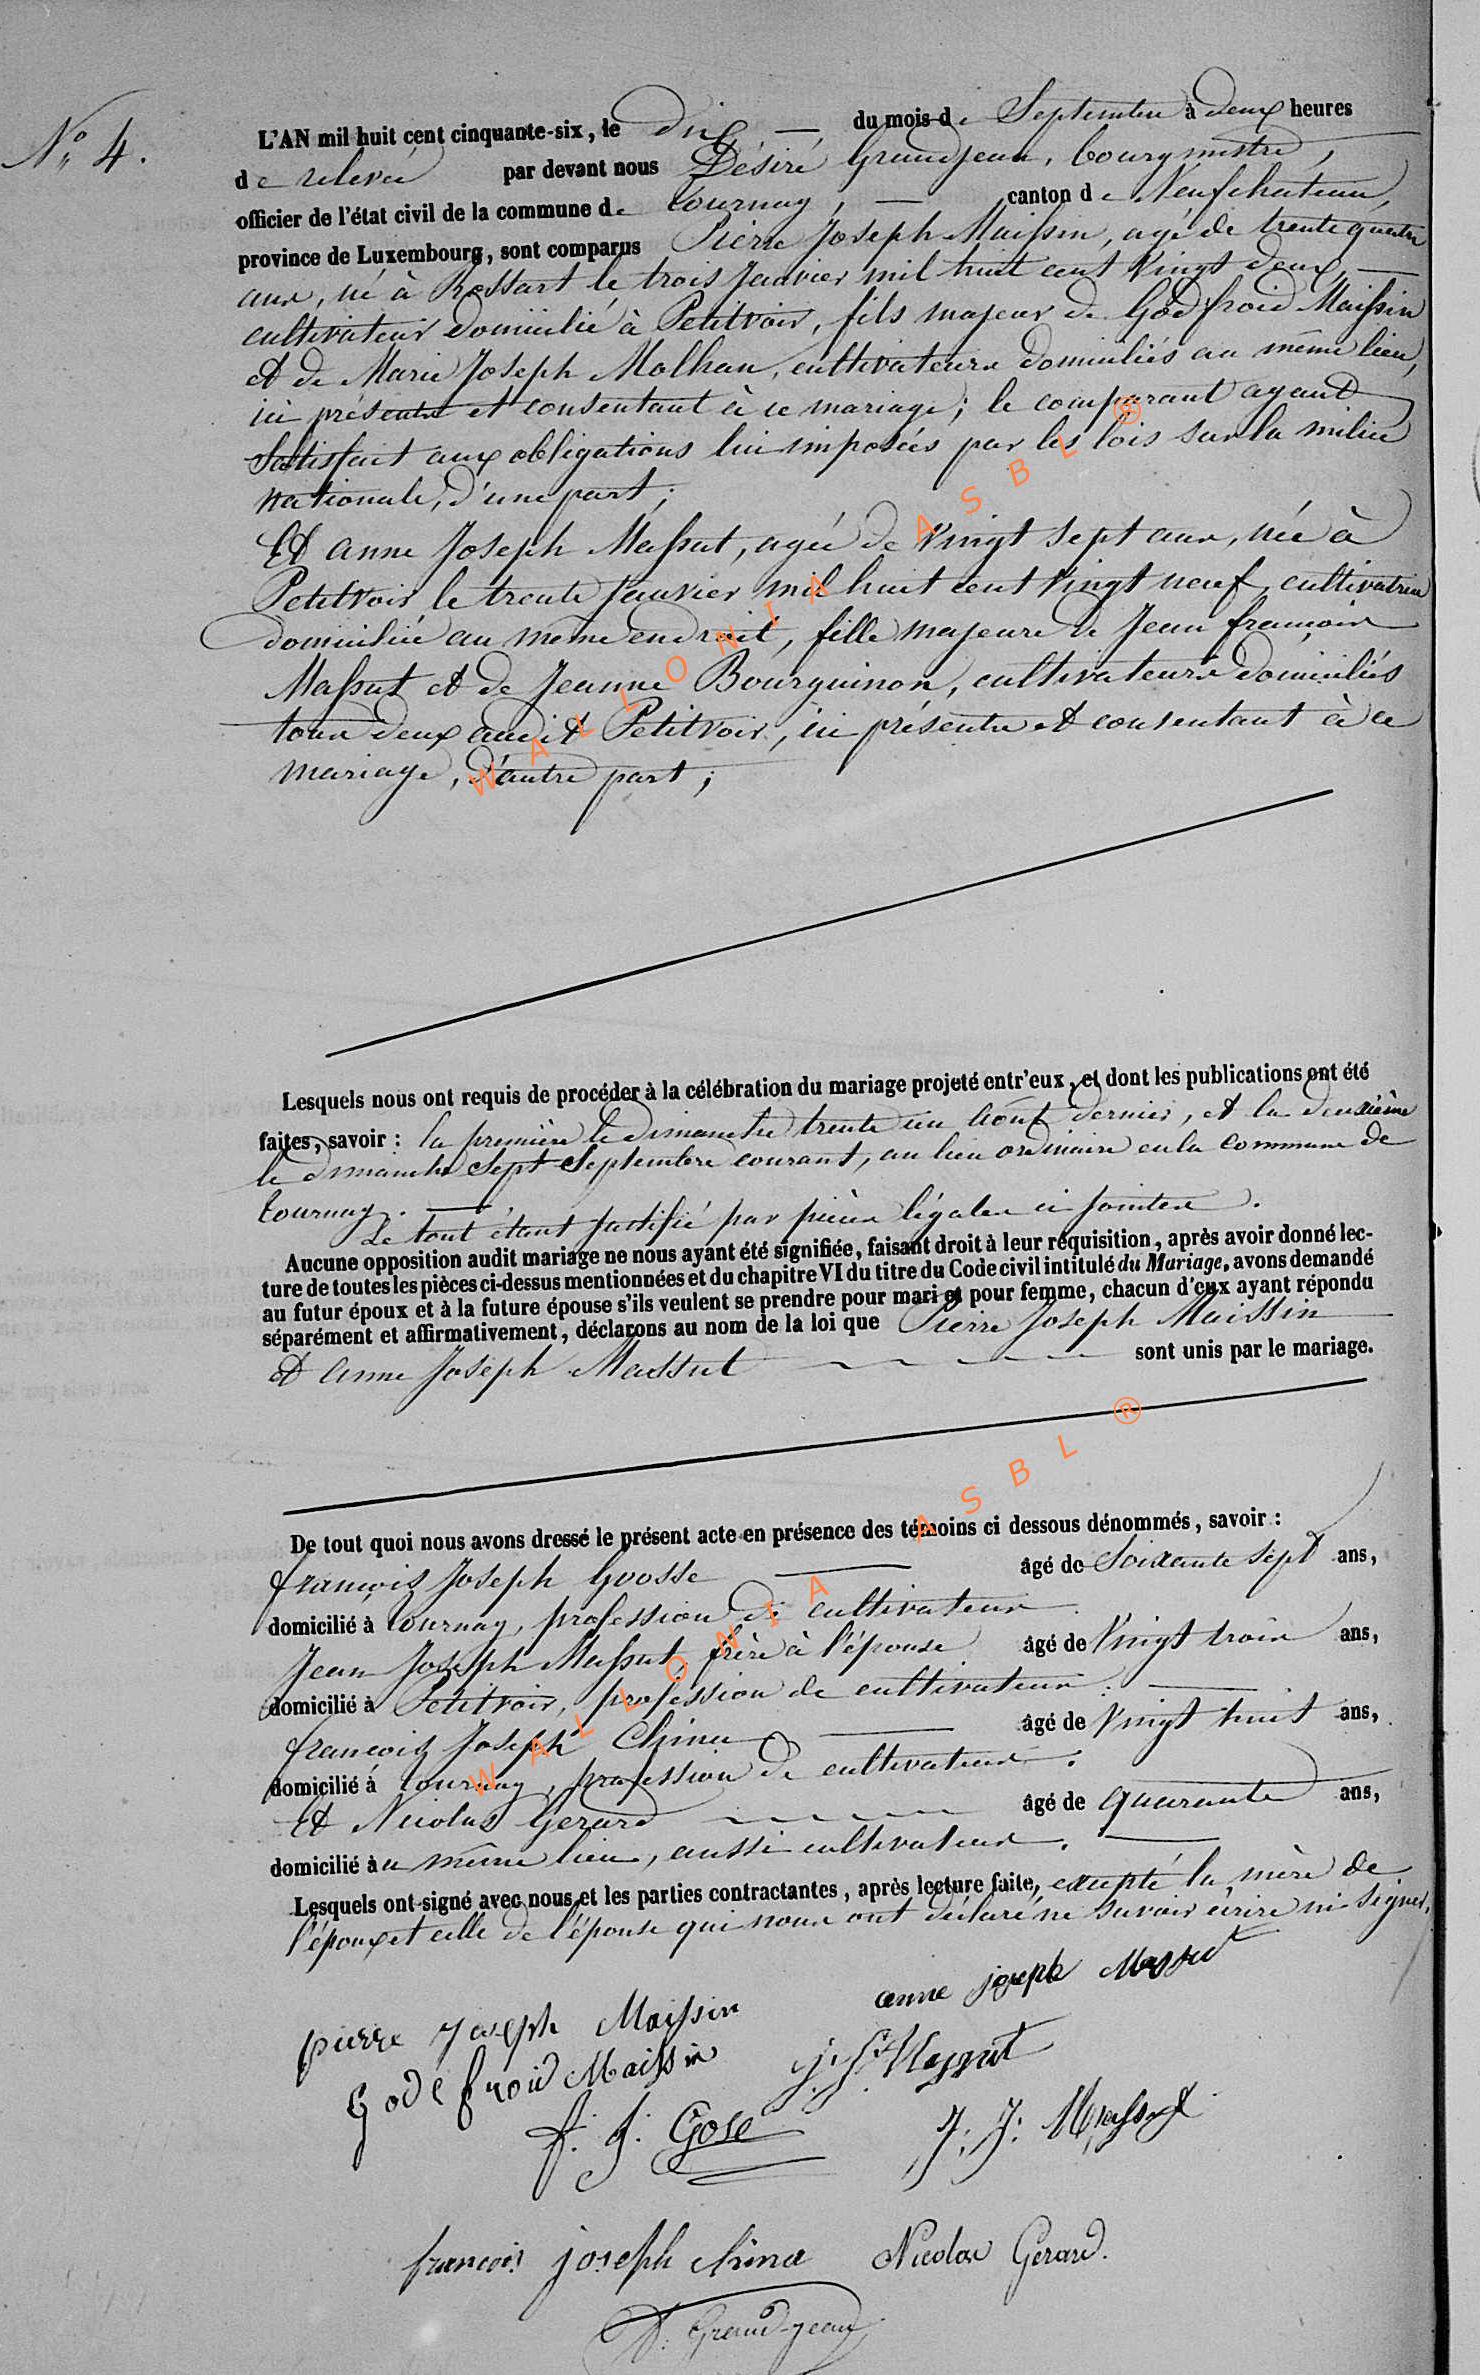 N° 4.
L'AN mil huit cent cinquante-six, le dix — du mois de Septembre à deux heures
de relevée par devant nous Désiré Grandjean, bourgmestre,
officier de l'état civil de la commune de Tournay, — canton de Neufchateau,
province de Luxembourg, sont comparus Pierre Joseph Maissin, agé de trente quatre
ans, né à Rossart le trois Janvier mil huit cent vingt deux, —
cultivateur domicilié à Petitvoir, fils majeur de Godfroid Maissin
et de Marie Joseph Molhan, cultivateurs domiciliés au même lieu,
ici présents et consentant à ce mariage; le comparant ayant
Satisfait aux obligations lui imposées par les lois sur la milice
nationale, d'une part;
Et anne Joseph Massut, agée de Vingt sept ans, née à
Petitvoir le trente Janvier mil huit cent vingt neuf, cultivatrice
domiciliée au même endroit, fille majeure de Jean françois
Massut et de Jeanne Bourguinon, cultivateurs domiciliés
tous deux audit Petitvoir, ici présents et consentant à ce
mariage, d'autre part;
Lesquels nous ont requis de procéder à la célébration du mariage projeté entr'eux, et dont les publications ont été
faites, savoir : la première le dimanche trente un août dernier, et la deuxième
le dimanche Sept Septembre courant, au lieu ordinaire en la commune de
Tournay. —
Le tout étant justifié par pièces légales ci jointes.
Aucune opposition audit mariage ne nous ayant été signifiée, faisant droit à leur réquisition, après avoir donné lec-
ture de toutes les pièces ci-dessus mentionnées et du chapitre VI du titre du Code civil intitulé du Mariage, avons demandé
au futur époux et à la future épouse s'ils veulent se prendre pour mari et pour femme, chacun d'eux ayant répondu
séparément et affirmativement, déclarons au nom de la loi que Pierre Joseph Maissin
et anne Joseph Massut sont unis par le mariage.
De tout quoi nous avons dressé le présent acte en présence des témoins ci dessous dénommés, savoir :
françois Joseph Gosse — âgé de Soixante Sept ans,
domicilié à Tournay, profession de cultivateur
Jean Joseph Massut, frère à l'épouse âgé de Vingt trois ans,
domicilié à Petitvoir, profession de cultivateur. —
françois Joseph China — âgé de Vingt huit ans,
domicilié à Tournay, profession de cultivateur.
Et Nicolas Gerard âgé de quarante ans,
domicilié au même lieu, aussi cultivateur. —
Lesquels ont signé avec nous et les parties contractantes, après lecture faite, excepté la mère de
l'époux et celle de l'épouse qui nous ont déclaré ne savoir écrire ni signer.
anne joseph Massut
pierre Joseph Maissin
Godefroid Maissin J. f. Massut
f. J. Gose J. J. Massut
françois joseph china Nicolas Gerard.
D. Grandjean
WALLONIA ASBL ®
WALLONIA ASBL ®